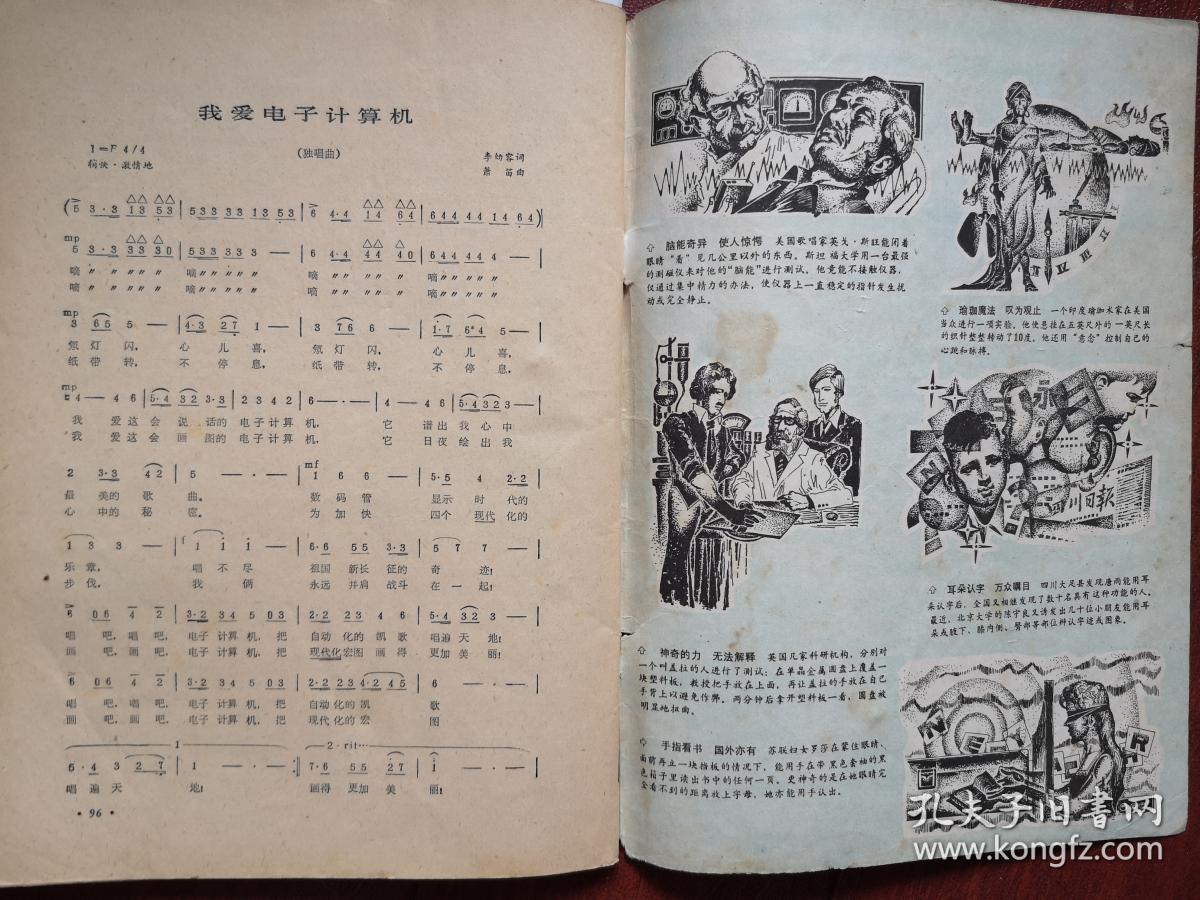 我爱电子计算机
1=F 4/4
(独唱曲)
李幼容词
萧笛曲
mp
嘀〃〃〃 〃〃 〃 嘀〃〃〃〃 〃 嘀〃 〃〃 〃〃 嘀〃〃〃〃 〃
嘀〃〃〃 〃〃 〃 嘀〃〃〃〃 〃 嘀〃 〃〃 〃〃 嘀〃〃〃〃 〃
mp
3 65 5 — | 4·3 27 1 — | 3 76 6 — | 1·7 6#4 5 — |
氖灯闪, 心儿喜, 氖灯闪, 心儿喜,
纸带转, 不停息, 纸带转, 不停息,
mp
4 — 4 6 | 5·4 32 3·3 | 2 3 4 2 | 6 — · — | 4 — 4 6 | 5·4 32 3 — |
我 爱这会说话的电子计算机, 它 谱出我心中
我 爱这会画图的电子计算机, 它 日夜绘出我
mf
2 3·3 42 | 5 — · — | 1 6 6 — | 5·5 4 2·2 |
最美的歌曲。 数码管 显示时代的
心中的秘密。 为加快 四个现代化的
f
1 3 3 — | 1 1 1 — | 6·6 55 3·3 | 5 7 7 — |
乐章, 唱不尽 祖国新长征的奇迹!
步伐, 我俩 永远并肩战斗在一起!
唱吧,唱吧,电子计算机,把自动化的凯歌唱遍天地!
画吧,画吧,电子计算机,把现代化宏图画得更加美丽!
唱吧,唱吧,电子计算机,把自动化的凯歌
画吧,画吧,电子计算机,把现代化的宏图
1 2·rit···
5·4 3 27 | 1 — · — :| 7·6 55 27 | 1 — · — |
唱遍天地! 画得更加美丽!
·96·
脑能奇异 使人惊愕 美国歌唱家英戈·斯旺能闭着
眼睛“看”见几公里以外的东西。斯坦福大学用一台最强
的测磁仪来对他的“脑能”进行测试。他竟能不接触仪器,
仅通过集中精力的办法,使仪器上一直稳定的指针发生扰
动或完全静止。
瑜珈魔法 叹为观止 一个印度瑜珈术家在美国
当众进行一项实验。他使悬挂在五英尺外的一英尺长
的织针整整转动了10度。他还用“意念”控制自己的
心跳和脉搏。
四川日报
耳朵认字 万众瞩目 四川大足县发现唐雨能用耳
朵认字后,全国又相继发现了数十名具有这种功能的人。
最近,北京大学的陈守良又诱发出几十位小朋友能用耳
朵或腋下、膝内侧、臀部等部位辨认字迹或图象。
神奇的力 无法解释 英国几家科研机构,分别对
一个叫盖拉的人进行了测试:在单晶金属圆盘上覆盖一
块塑料板,教授把手放在上面,再让盖拉的手放在自己
手背上以避免作弊。两分钟后拿开塑料板一看,圆盘被
明显地扭曲。
手指看书 国外亦有 苏联妇女罗莎在蒙住眼睛、
面前再立一块挡板的情况下,能用手在带黑色套袖的黑
色箱子里读出书中的任何一页。更神奇的是在她眼睛完
全看不到的距离放上字母,她亦能用手认出。
N E R
孔夫子旧书网
www.kongfz.com